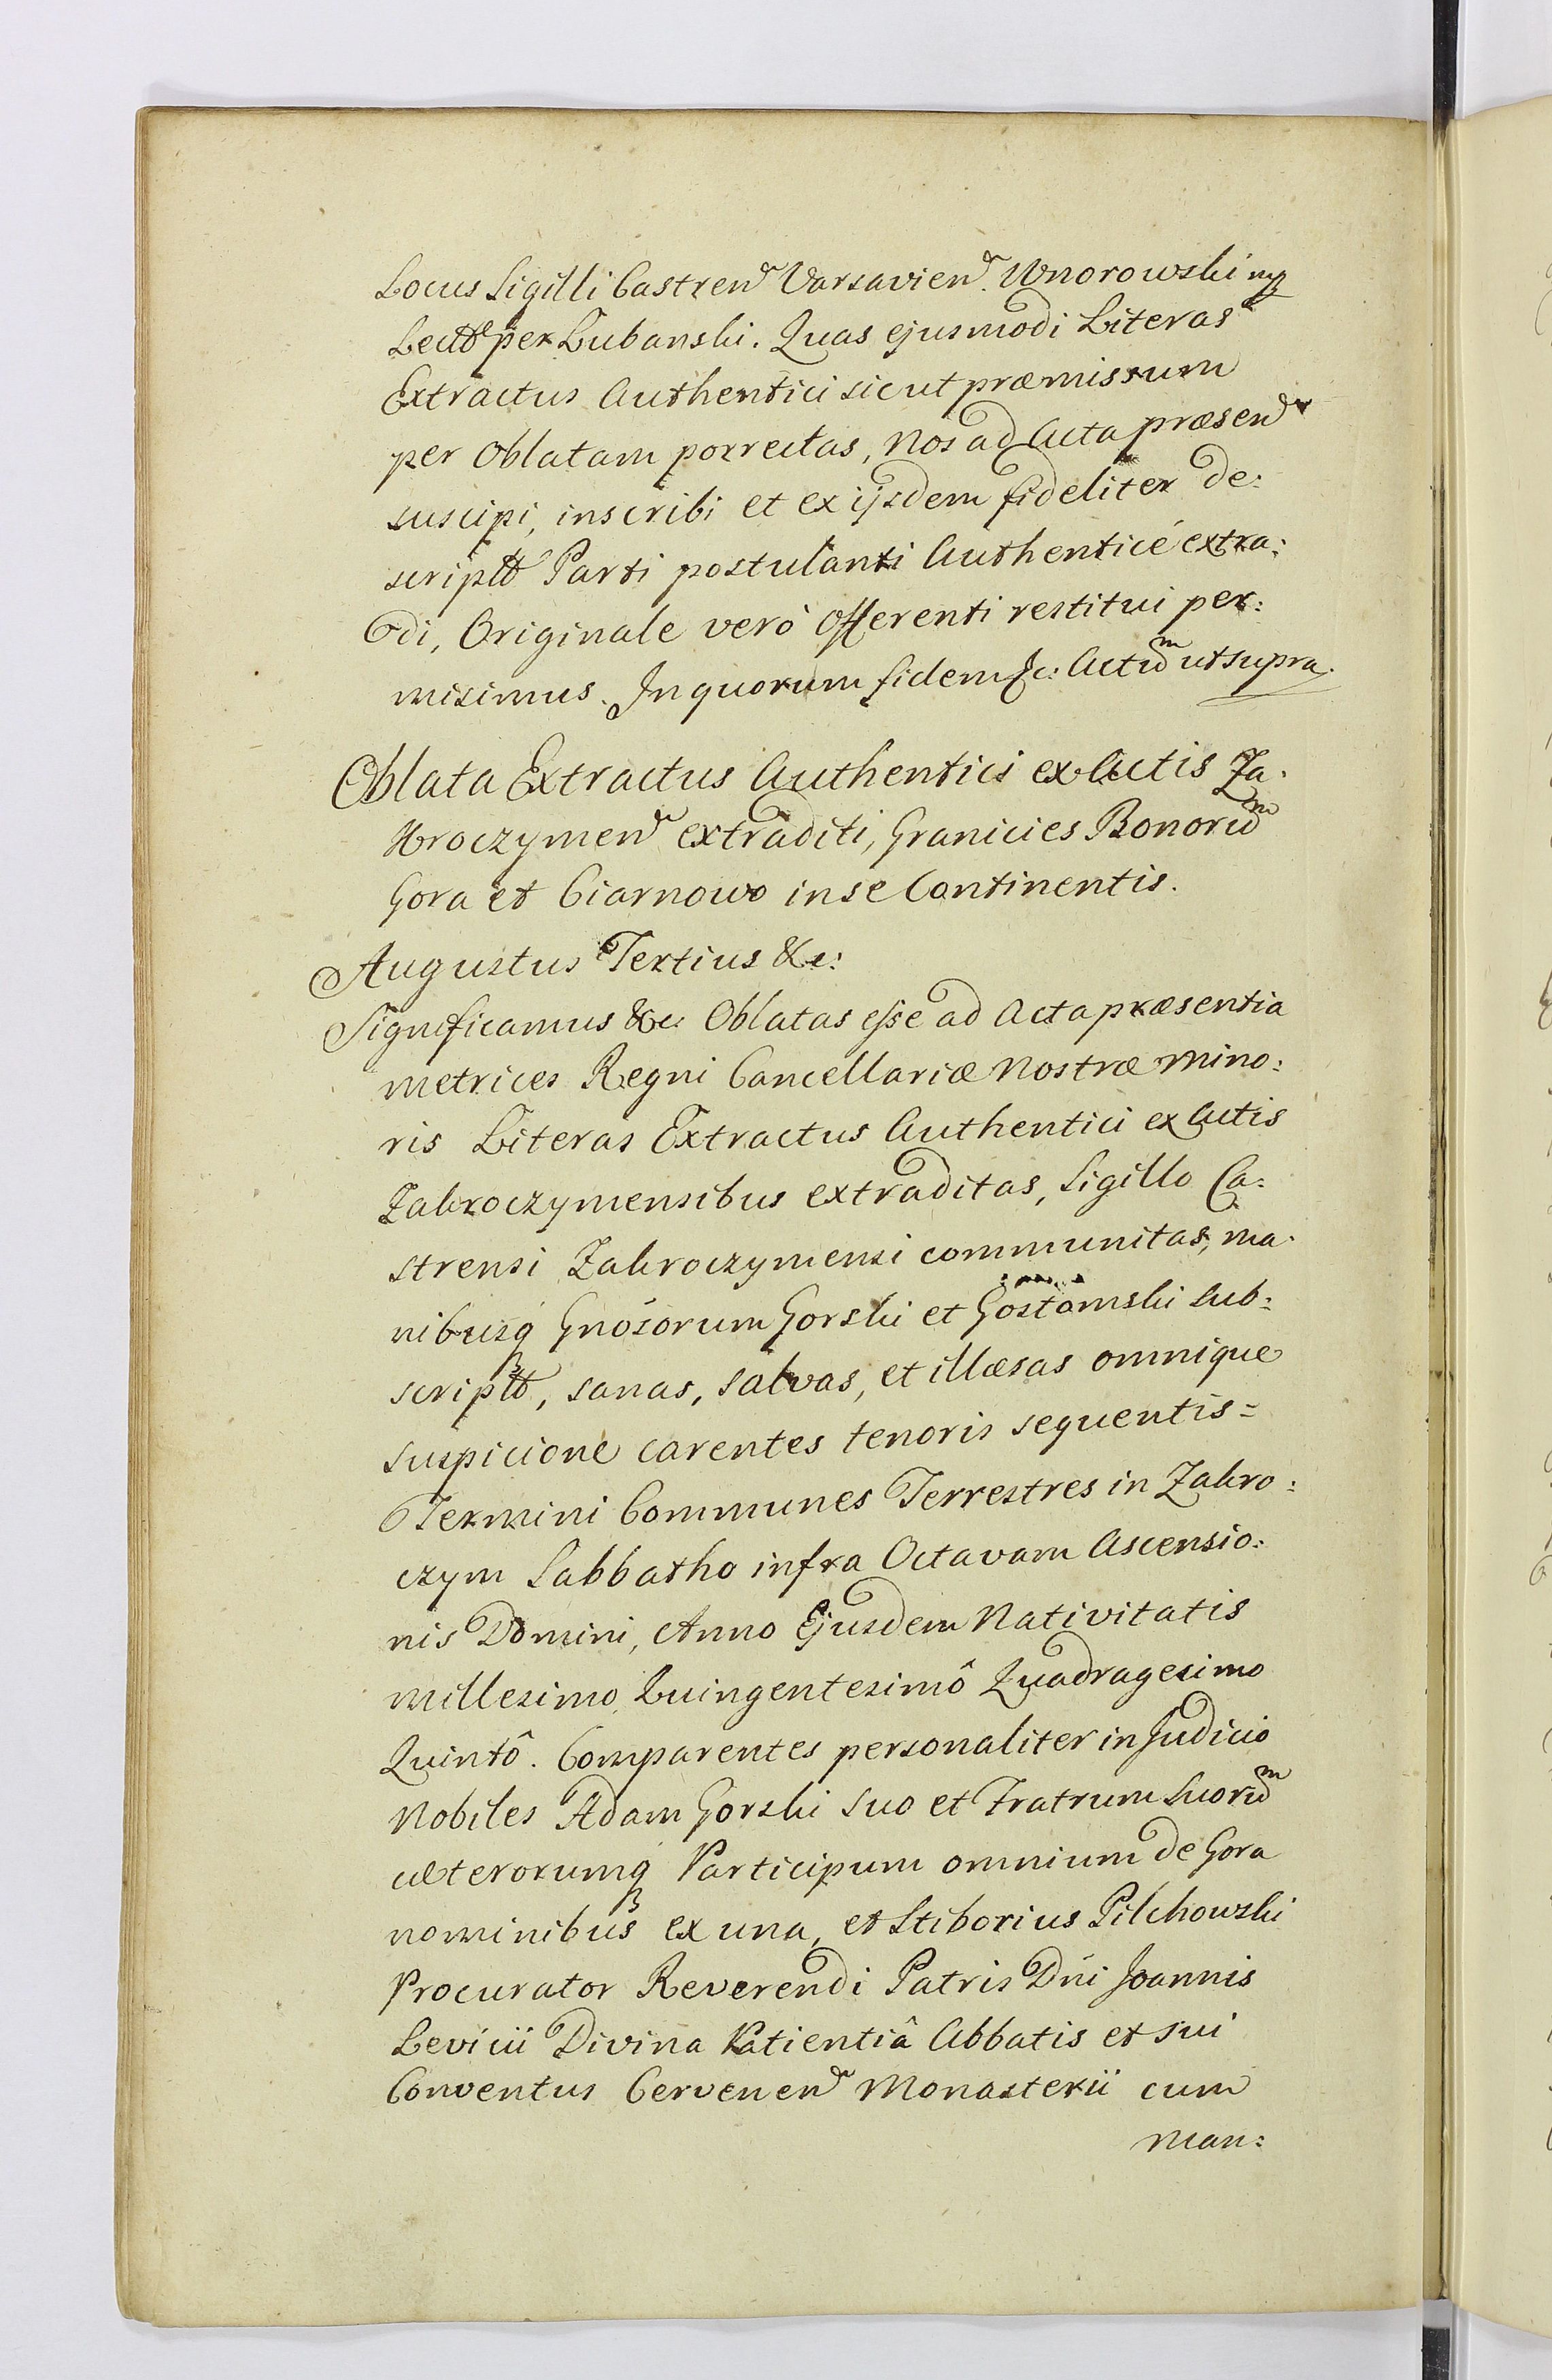 Locus Sigilli Castren Varsavien. Wnorowski mp
Lect per Lubanski. Quas ejusmodi Literas
Extractus Authentici sicut præmissum
per Oblatam porrectas, Nos ad Acta præsen
suscipi, inscribi et ex ijsdem fideliter de:
script Parti postulanti Authenticé extra:
di, Originale verò Offerenti restitui per:
misimus. In quorum fidem &c: Actum ut supra.
Oblata Extractus Authentici ex Actis Za:
kroczymen extraditi, Granicies Bonorum
Gora et Ciarnowo in se Continentis.
Augustus Tertius &c:
Significamus &c: Oblatas esse ad Acta præsentia
metrices Regni Cancellariæ Nostræ Mino:
ris Literas Extractus Authentici ex Actis
Zakroczymensibus extraditas, Sigillo Ca:
strensi Zakroczymensi communitas, ma:
nibusq Gnosorum Gorski et Gostomski sub:
script, sanas, salvas, et illæsas omnique
suspicione carentes tenoris sequentis=
Termini Communes Terrestres in Zakro:
czym Sabbatho infra Octavam Ascensio:
nis Domini, Anno Ejusdem Nativitatis
Millesimo Quingentesimô Quadragesimo
Quintô. Comparentes personaliter in Judicio
Nobiles Adam Gorski suo et Fratrum Suorum
cæterorumq Participum omnium de Gora
nominibus ex una, et Stiborius Pilchowski
Procurator Reverendi Patris Dni Joannis
Levicii Divina Patientiâ Abbatis et sui
Conventus Cervenen Monasterii cum
man: